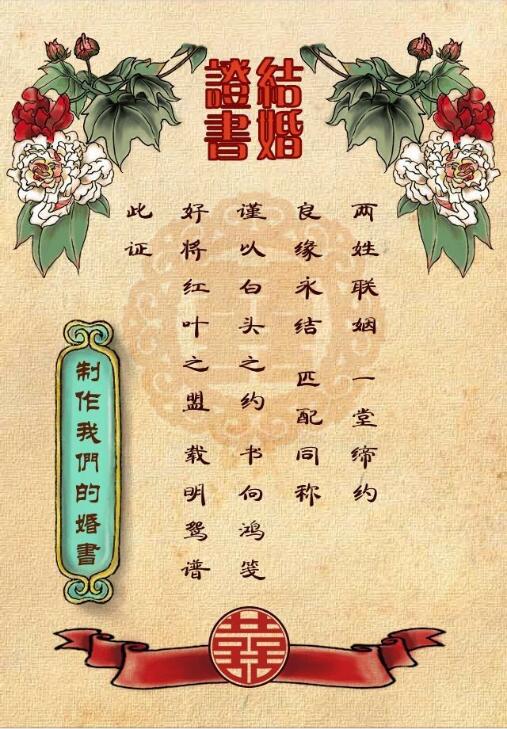 結婚
證書
两姓联姻 一堂缔约
良缘永结 匹配同称
谨以白头之约 书向鸿笺
好将红叶之盟 载明鸳谱
此证
制作我們的婚書
囍